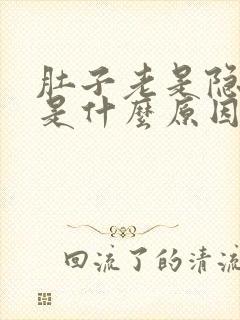 肚子老是隐
是什麽原因
回流了的清流